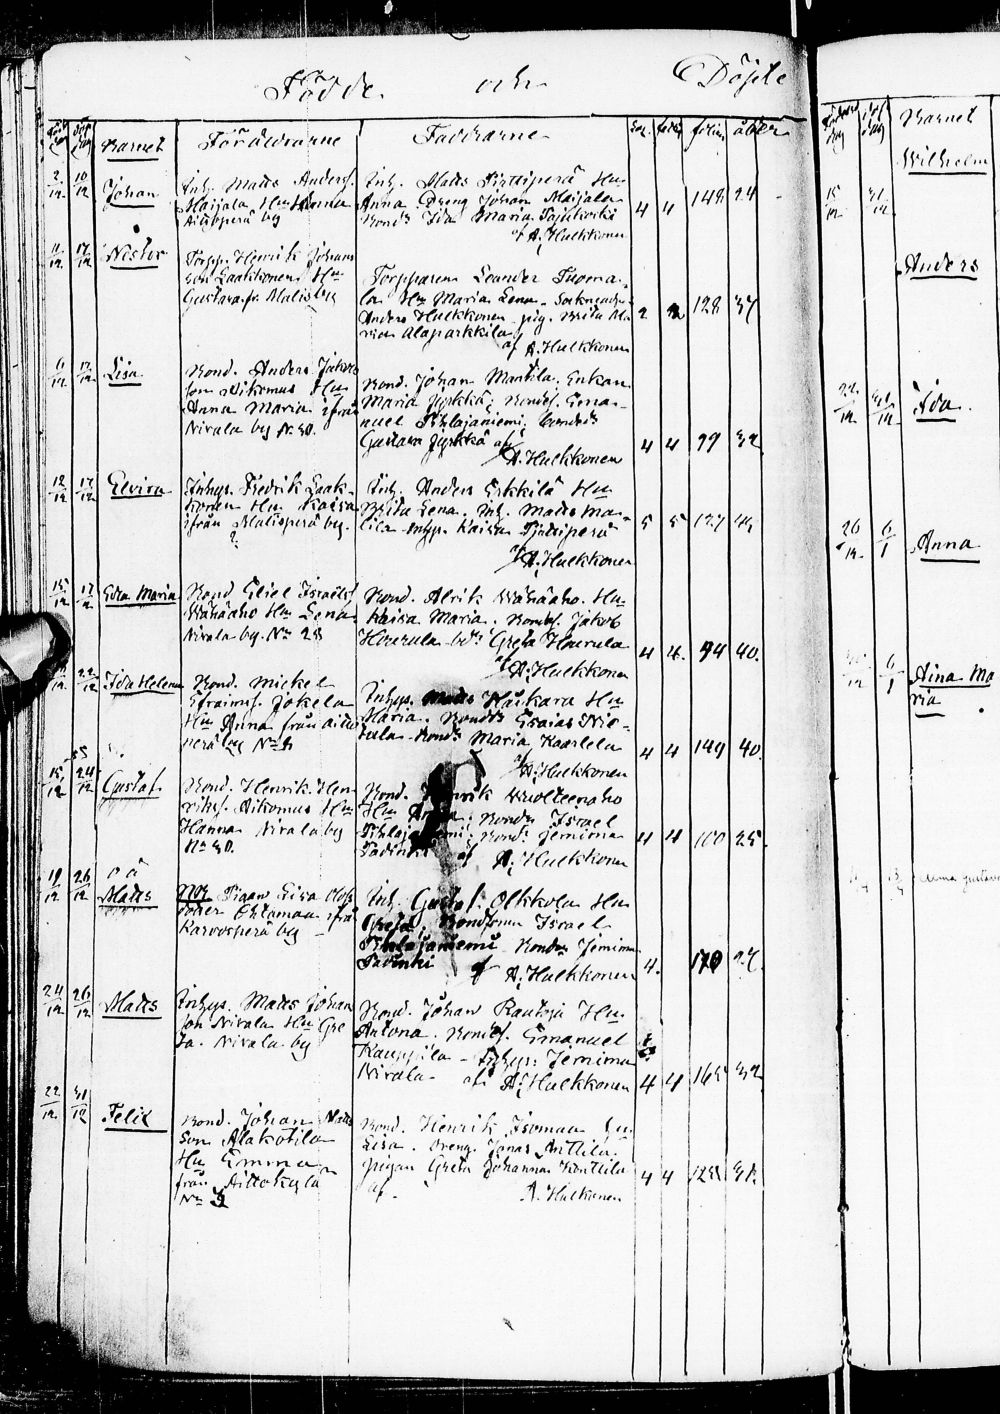 Födde och Döpte
Barnet Föräldrarne Faddrarne
2/12 10/12 Johan
Inh. Matts Anders.
Maijala Hu Hanna
Aittoperä by
Inh. Matts Pirttiperä Hu
Anna Dreng Johan Maijala
Bond. Ida Maria Pajukoski
af A. Hulkkonen
4 4 148 24
11/12 17/12 Nestor
Torpp. Henrik Johans
son Laakkonen Hu
Gustava fr. Malisby
Torpparen Leander Tuoma-
la Hu Maria Lena
Anders Hulkkonen pig. Brita Ma
ria Alaparkkila
af A. Hulkkonen
2 2 128 37
6/12 17/12 Lisa
Bond. Anders Jakobs
son Aikomus Hu
Anna Maria ifrån
Nivala by No 30.
Bond. Johan Marttila. Enkan
Maria Jyrkkä; Bondes. Ema-
nuel Pihlajaniemi;
Gustava Jyrkkä af
A. Hulkkonen
4 4 99 32
12/12 17/12 Elvira
Inhys. Fredrik Laak-
konen Hu Kaisa
ifrån Malisperä by.
Inh. Anders Erkkilä Hu
Brita Lena. Inh. Matts Ma-
lila Inhys. Kaisa Pirttiperä
af A. Hulkkonen
5 5 127
15/12 17/12 Edla Maria
Bond Eliel Israels.
Vähäaho Hu Lena
Nivala by. No 28
Bond. Alrik Vähäaho. Hu
Kaisa Maria. Bondes. Jakob
Hourula bd. Greta Hourula
af A. Hulkkonen
4 4. 94 40.
22/12 Ida Helena
Bond. Mickel
Efraims. Jokela
Hu Anna från Aitto
perä by No
Inhys. Matts Kaikara Hu
Maria. Bonds Esaias Nio-
tula Bonds Maria Kaarlela
af A. Hulkkonen
4 4 149 40.
15/12 24/12 Gustaf
Bond. Henrik Hen
riks. Aikomus Hu
Hanna Nivala by
No 30.
Bond. Henrik Wuolteenaho
Hu. Bonds Israel
Pihlajaniemi; Bonds Jemima
Padinki af A. Hulkkonen
4 4 100 25.
19/12 26/12 o ä
Matts
Pigan Lisa Olofs
doter Ohtamaa ifrån
Karvosperä by
Inh. Gustaf Olkkola Hu
Greta, Bondsonen Israel
Pihlajaniemi Bonds Jemima
Padinki af A. Hulkkonen
4. 170 27.
24/12 26/12 Matts
Inhys. Matts Johan
son Nivala Hu Gre
ta. Nivala by
Bond. Johan Rautoja Hu
Antona. Bondes. Emanuel
Kauppila Inhys. Jemima
Nivala af A. Hulkkonen
4 4 165 32
22/12 31/12 Felix
Bond. Johan Matts
son Alakotila
Hu Emma
från Aittokylä
No
Bond. Henrik Isomaa Hu
Lisa. Dreng Jonas Anttila.
pigan Greta Johanna Konttila
af A. Hulkonen
4 4 31.
Barnet
Wilhelm
15/12 31/12
Anders
22/12 31/12 Ida.
26/12 6/1 Anna
6/1 Aina Ma
ria